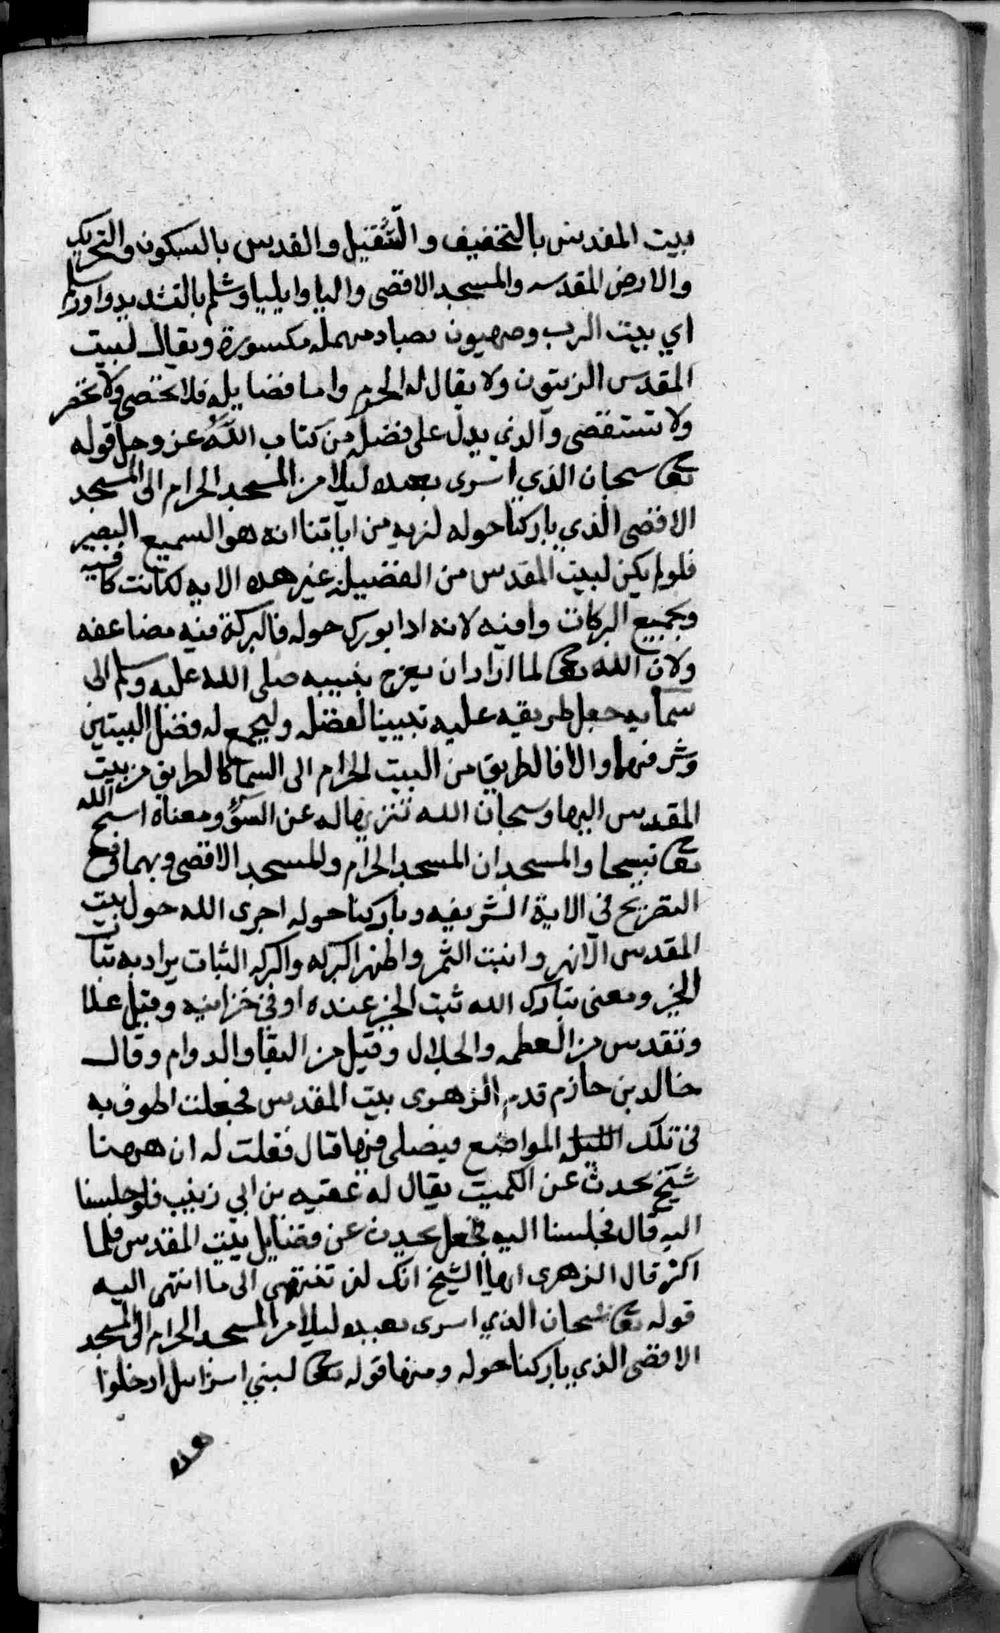 بيت المقدس بالتخفيف والتثقيل والقدس بالسكون والتحريك
والارض المقدسه والمسجد الاقصى واليا وايليا وشلم بالتشديد واورشلم
اي بيت الرب وصهيون بصاد مهمله مكسورة ويقال لبيت
المقدس الزيتون ولا يقال له الحرم واما فضايله فلا تحصى ولا تحصر
ولا تستقصى والذي يدل على فضله من كتاب الله عز وجل قوله
تعالى سبحان الذي اسرى بعبده ليلا من المسجد الحرام الى المسجد
الاقصى الذي باركنا حوله لنريه من اياتنا انه هو السميع البصير
فلو لم يكن لبيت المقدس من الفضيلة غير هده الايه لكانت كافيه
وبجميع البركات وافيه لانه ادا بورك حوله فالبركة فيه مضاعفه
ولان الله تعالى لما اراد ان يعرج بنبيه صلى الله عليه وسلم الى
سمايه جعل طريقه عليه تبيينا لفضله وليجمع له فضل البيتين
وشرفهما والا فالطريق من البيت الحرام الى السما كالطريق من بيت
المقدس اليها وسبحان الله تنزيها له عن السوء ومعناه اسبح الله
تعالى تسبيحا والمسجدان المسجد الحرام والمسجد الاقصى وبهما وقع
التصريح في الاية الشريفه وباركنا حوله اجرى الله حول بيت
المقدس الانهر وانبت الثمر واظهر البركه والبركه الثبات يراد به ثبات
الخير ومعنى تبارك الله ثبت الخير عنده او في خزاينه وقيل علا
وتقدس من العظمه والجلال وقيل من البقا والدوام وقال
خالد بن حازم قدم الزهرى بيت المقدس فجعلت اطوف به
في تلك الليله المواضع فيصلى فيها قال فقلت له ان ههنا
شيخ يحدث عن الكتب يقال له عقبه بن ابي زينب فلو جلسنا
اليه قال فجلسنا اليه فجعل يحدث عن فضايل بيت المقدس فلما
اكثر قال الزهرى ايها الشيخ انك لن تنتهي الى ما انتهى اليه
قوله تعالى سبحان الذي اسرى بعبده ليلا من المسجد الحرام الى المسجد
الاقصى الذي باركنا حوله ومنها قوله تعالى لبني اسرايل ادخلوا
هده